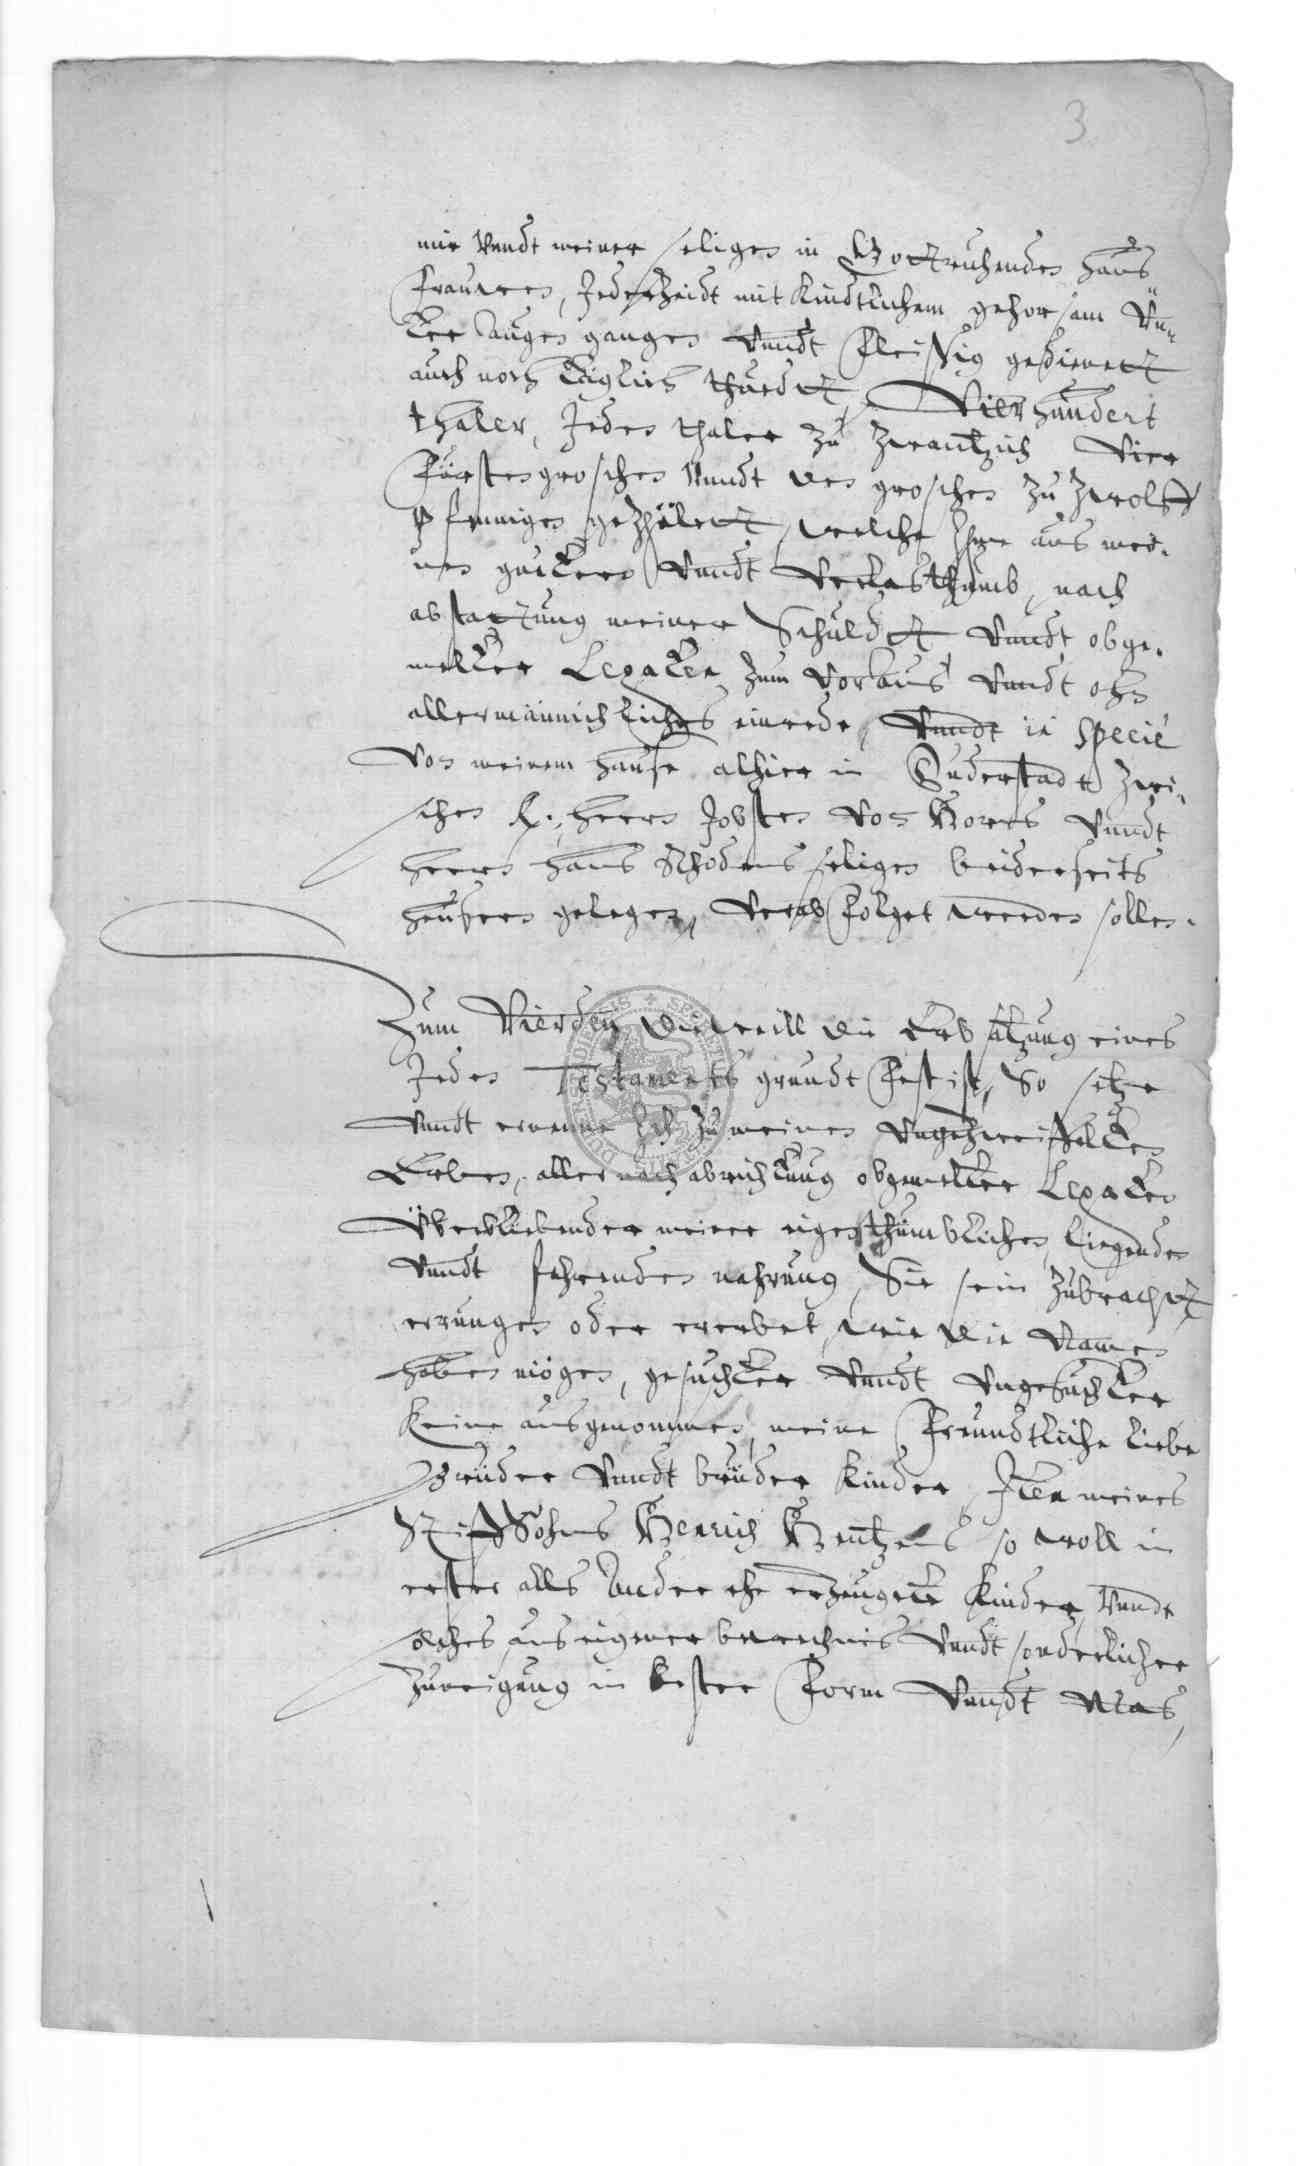 3
mir Vnndt meiner seligen in Gott ruhenden Haus
Frauwen, Jederzeidt mit Kindtlichem gehorsam Vn-
ter Augen gangen Vnndt Fleissig gedienett
auch noch teglich thuedtt, Vierhundert
thaler, Jeden thaler zu zwantzich Vier
Fürstengroschen Vnndt den groschen zu zwolff
pfenningen gezhelett, welche Ihme aus mei-
nen guetern Vnndt Verlasthumb, nach
abstattung meiner Schuldtt Vnndt obge-
melter Legaten zum Voraus Vnndt ohn
allermännichliches einrede, Vnndt in specie
Von meinem Hause alhier in Duderstadt zwi-
schen H. Herrn Jobsten Von Hoven Vnndt
Herrn Hans Rhodens seligen beiderseits
heusern gelegen, Verabfolget werden sollen.
Zum Vierden dieweill die Erbsatzung eines
Jeden Testaments grundt Fest ist, So setze
Vnndt ernenne Ich zu meinen Vngezweiffelten
Erben, aller nach abrichtung obgemelter Legaten
Überbliebender meiner eigenthumblichen liegenden
Vnndt fahrenden nahrung, Sie sein zubrachtt
errungen oder ererbet, wie die Namen
haben mögen, gesuchter Vnndt Vngesuchter
Keine ausgenommen, meine Freundtliche liebe
Brüder Vnndt brüder Kinder, Item meines
StiffSohns Henrich Hentzens so woll in
erster alls Ander ehe erzeugete Kinder, Vnndt
solches aus eigener bewechnis Vnndt sonderlicher
Zuneigung in bester Form Vnndt Mas,